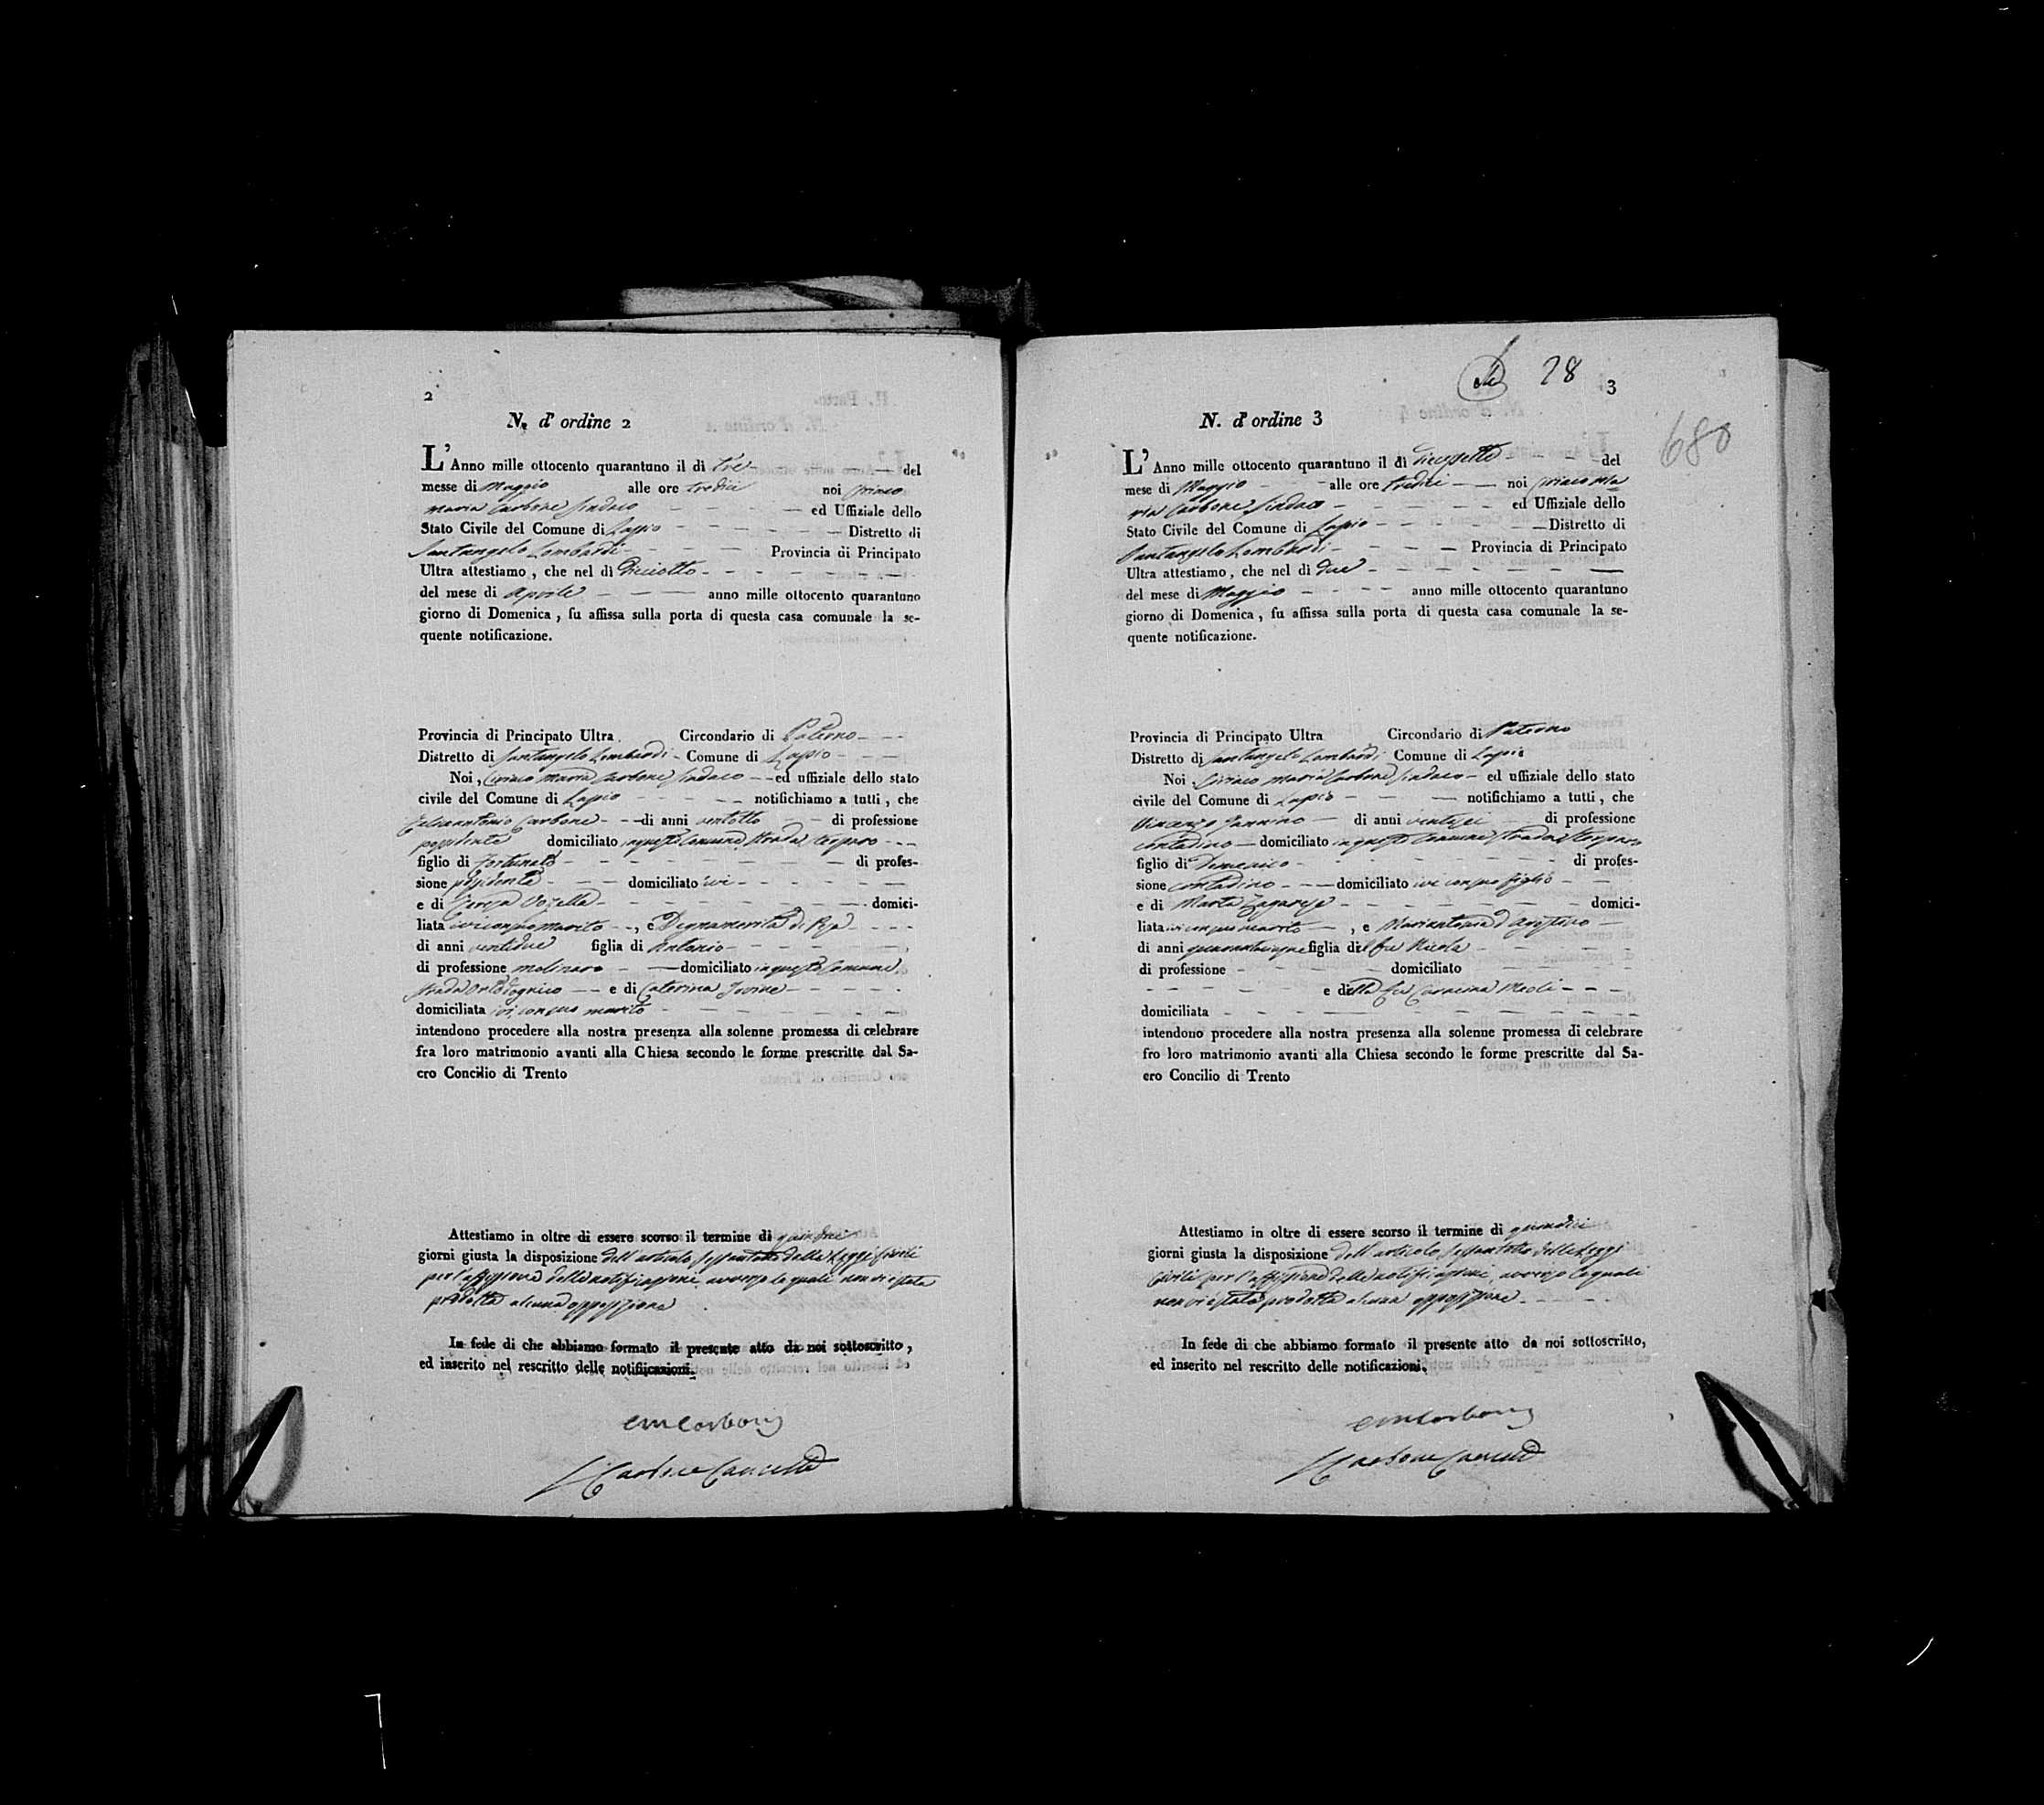 2
N. d' ordine 2
L' Anno mille ottocento quarantuno il di tre del
messe di Maggio alle ore tredici noi Ciriaco
Maria Carbone Sindaco ed Uffiziale dello
Stato Civile del Comune di Lapio Distretto di
Santangelo Lombardi Provincia di Principato
Ultra attestiamo, che nel dì diciotto
del mese di Aprile anno mille ottocento quarantuno
giorno di Domenica, fu affissa sulla porta di questa casa comunale la se-
quente notificazione.
Provincia di Principato Ultra Circondario di Paterno
Distretto di Santangelo Lombardi Comune di Lapio
Noi, Ciriaco Maria Carbone Sindaco ed uffiziale dello stato
civile del Comune di Lapio notifichiamo a tutti, che
Carbone di anni ventotto di professione
possidente domiciliato in questo Comune strada
figlio di Fortunato di profes-
sione possidente domiciliato ivi
e di Teresa Vozella domici-
liata ivi con suo marito, e Degnamerita di
di anni ventidue figlia di Antonio
di professione molinaro domiciliato in questo Comune
strada e di Caterina Iovine
domiciliata ivi con suo marito
intendono procedere alla nostra presenza alla solenne promessa di celebrare
fra loro matrimonio avanti alla Chiesa secondo le forme prescritte dal Sa-
cro Concilio di Trento
Attestiamo in oltre di essere scorso il termine di quindici
giorni giusta la disposizione dell'articolo sessantotto delle Leggi Civili
per l'affissione delle notificazioni, avverso le quali non vi è stata
prodotta alcuna opposizione
In fede di che abbiamo formato il presente atto da noi sottoscritto,
ed inserito nel rescritto delle notificazioni.
CM Carbone
Carbone
28
3
680
N. d' ordine 3
L' Anno mille ottocento quarantuno il di diecisette del
mese di Maggio alle ore tredici noi Ciriaco Ma
ria Carbone Sindaco ed Uffiziale dello
Stato Civile del Comune di Lapio Distretto di
Santangelo Lombardi Provincia di Principato
Ultra attestiamo, che nel dì due
del mese di Maggio anno mille ottocento quarantuno
giorno di Domenica, fu affissa sulla porta di questa casa comunale la se-
quente notificazione.
Provincia di Principato Ultra Circondario di Paterno
Distretto di Santangelo Lombardi Comune di Lapio
Noi, Ciriaco Maria Carbone Sindaco ed uffiziale dello stato
civile del Comune di Lapio notifichiamo a tutti, che
Vincenzo Iannino di anni ventisei di professione
contadino domiciliato in questo Comune strada
figlio di Domenico di profes-
sione contadino domiciliato ivi con suo figlio
e di Marta Zagarese domici-
liata ivi con suo marito, e Mariantonia d'Agostino
di anni figlia del fu Nicola
di professione domiciliato
e della fu Carmina Meoli
domiciliata
intendono procedere alla nostra presenza alla solenne promessa di celebrare
fro loro matrimonio avanti alla Chiesa secondo le forme prescritte dal Sa-
cro Concilio di Trento
Attestiamo in oltre di essere scorso il termine di quindici
giorni giusta la disposizione dell'articolo sessantotto delle Leggi
Civili per l'affissione delle notificazioni, avverso le quali
non vi è stata prodotta alcuna opposizione
In fede di che abbiamo formato il presente atto da noi sottoscritto,
ed inserito nel rescritto delle notificazioni.
CM Carbone
Carbone